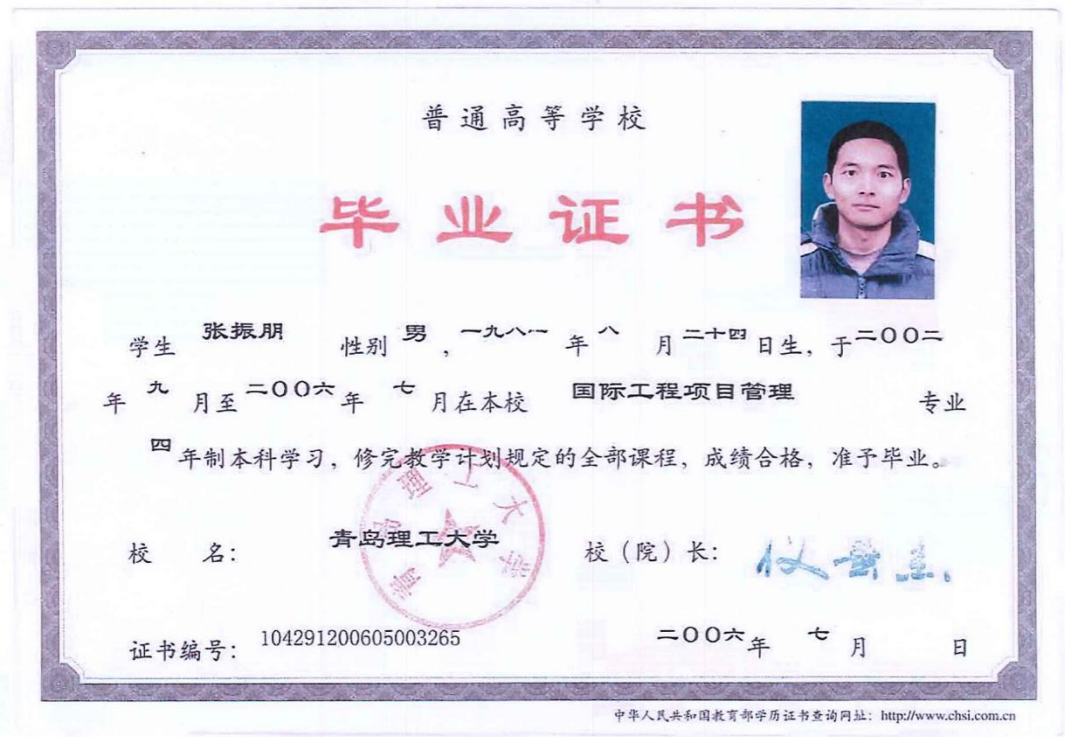 普通高等学校
毕业证书
学生 张振朋 性别 男 , 一九八一 年 八 月 二十四 日生, 于 二〇〇二
年 九 月至 二〇〇六 年 七 月在本校 国际工程项目管理 专业
四 年制本科学习, 修完教学计划规定的全部课程, 成绩合格, 准予毕业。
青岛理工大学
校 名: 青岛理工大学 校(院)长:
证书编号: 104291200605003265 二〇〇六 年 七 月 日
中华人民共和国教育部学历证书查询网址: http://www.chsi.com.cn